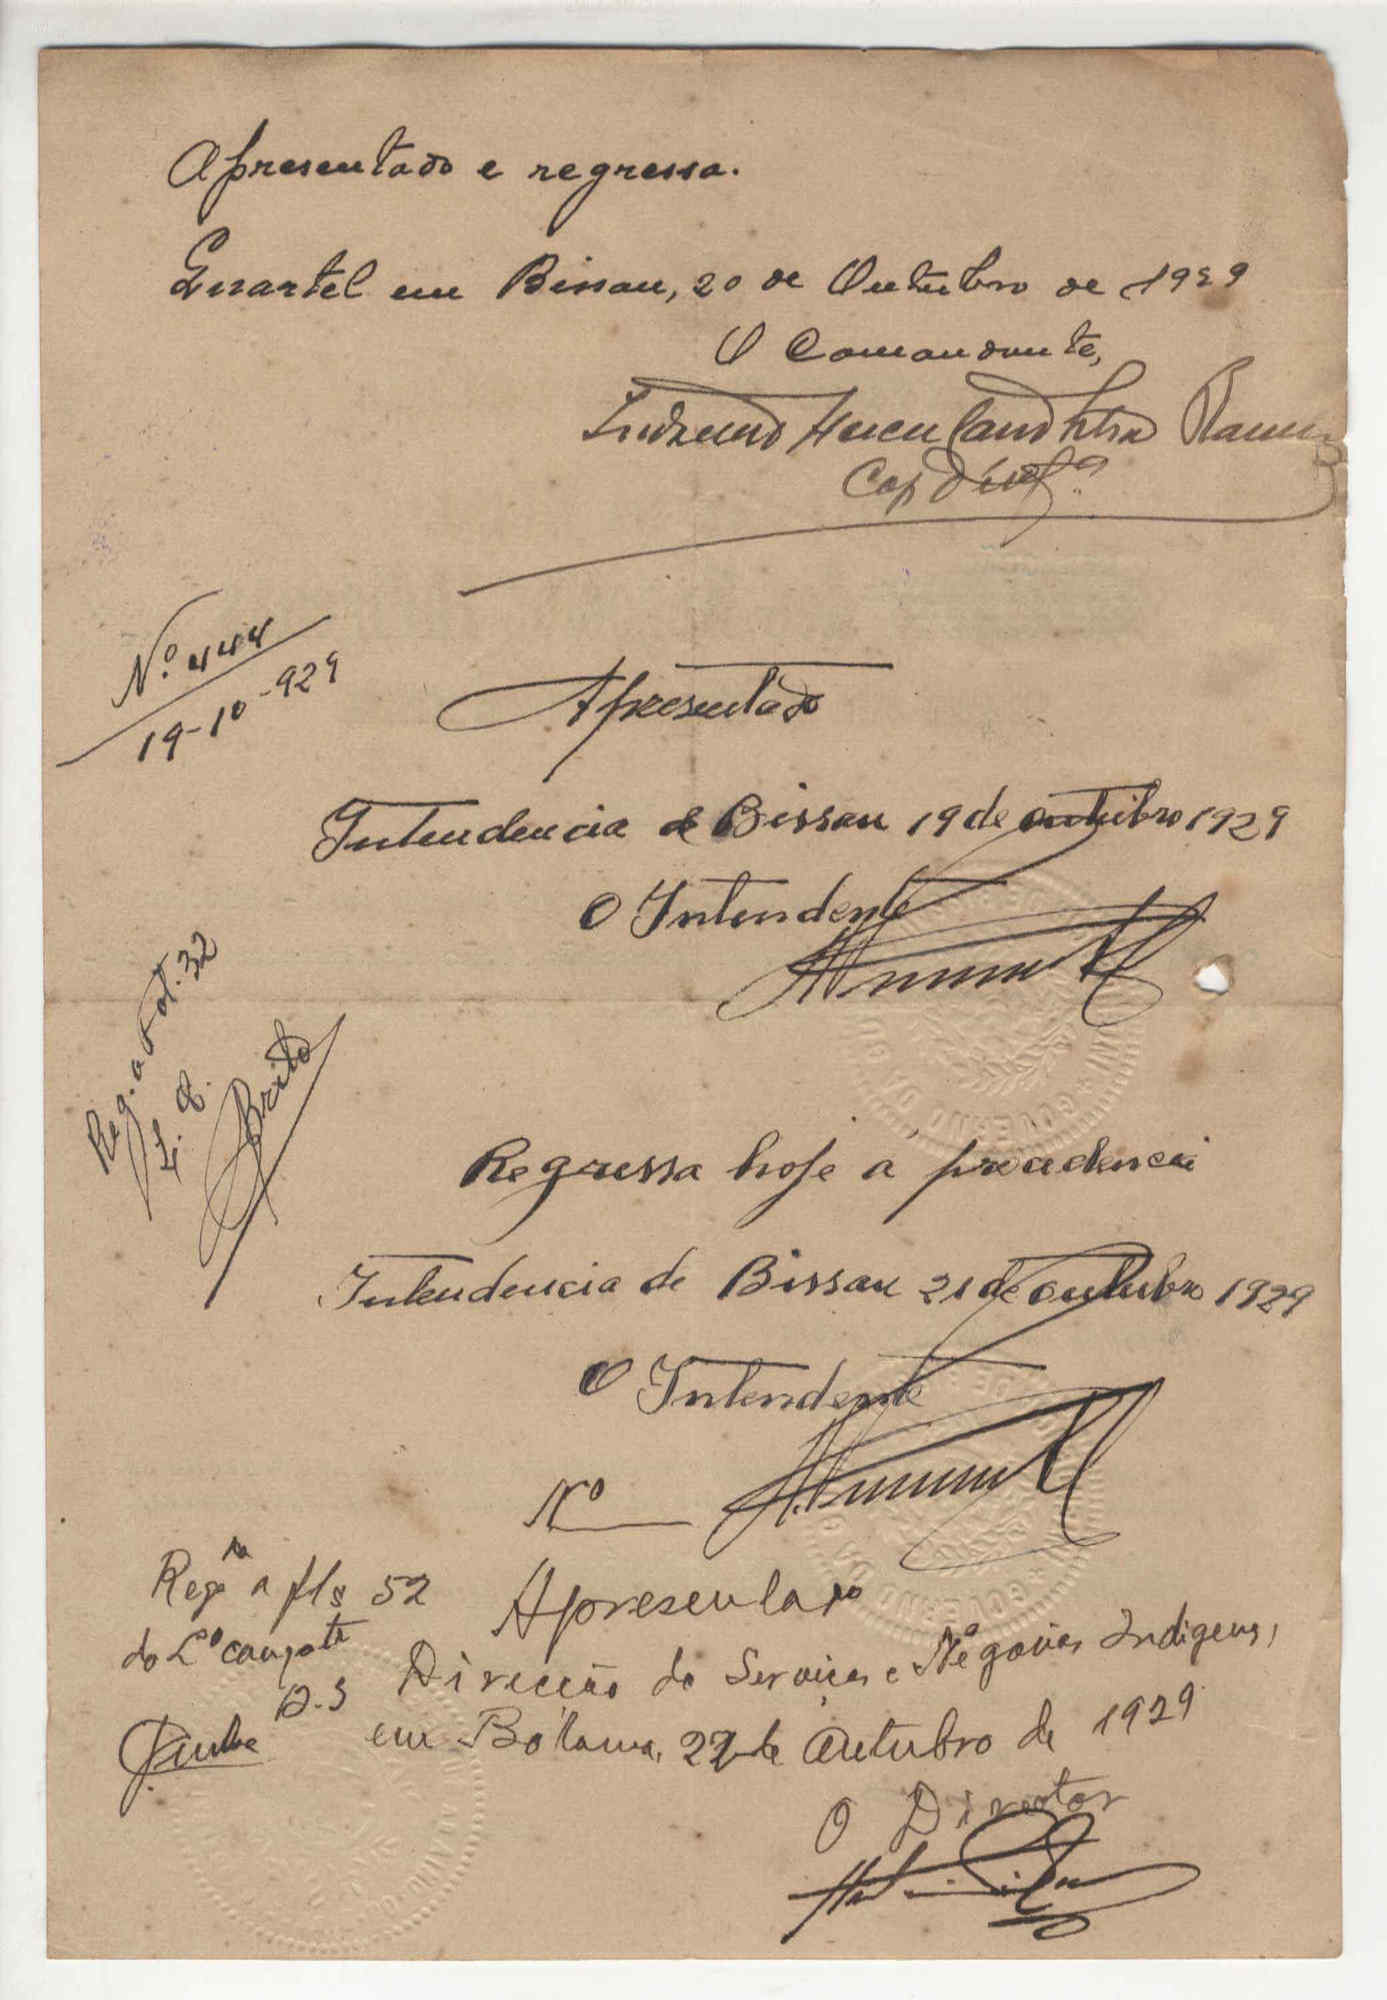 Apresentado e regressa.
Quartel em Bissau, 20 de Outubro de 1929
O Comandante,
Cap d'inf.ª
Nº. 444
19-10-929
Apresentado
Intendencia de Bissau 19 de outubro 1929
O Intendente
Reg. a Fol. 32
L. 8.
Brito
Regressa hoje á procedencia
Intendencia de Bissau 21 de outubro 1929
O Intendente
Nº
Apresentado
Direcção do Serviços e Negocios Indigenas,
em Bolama, 22 de Outubro de 1929
O Director
Regº a fls 52
do Lº compte